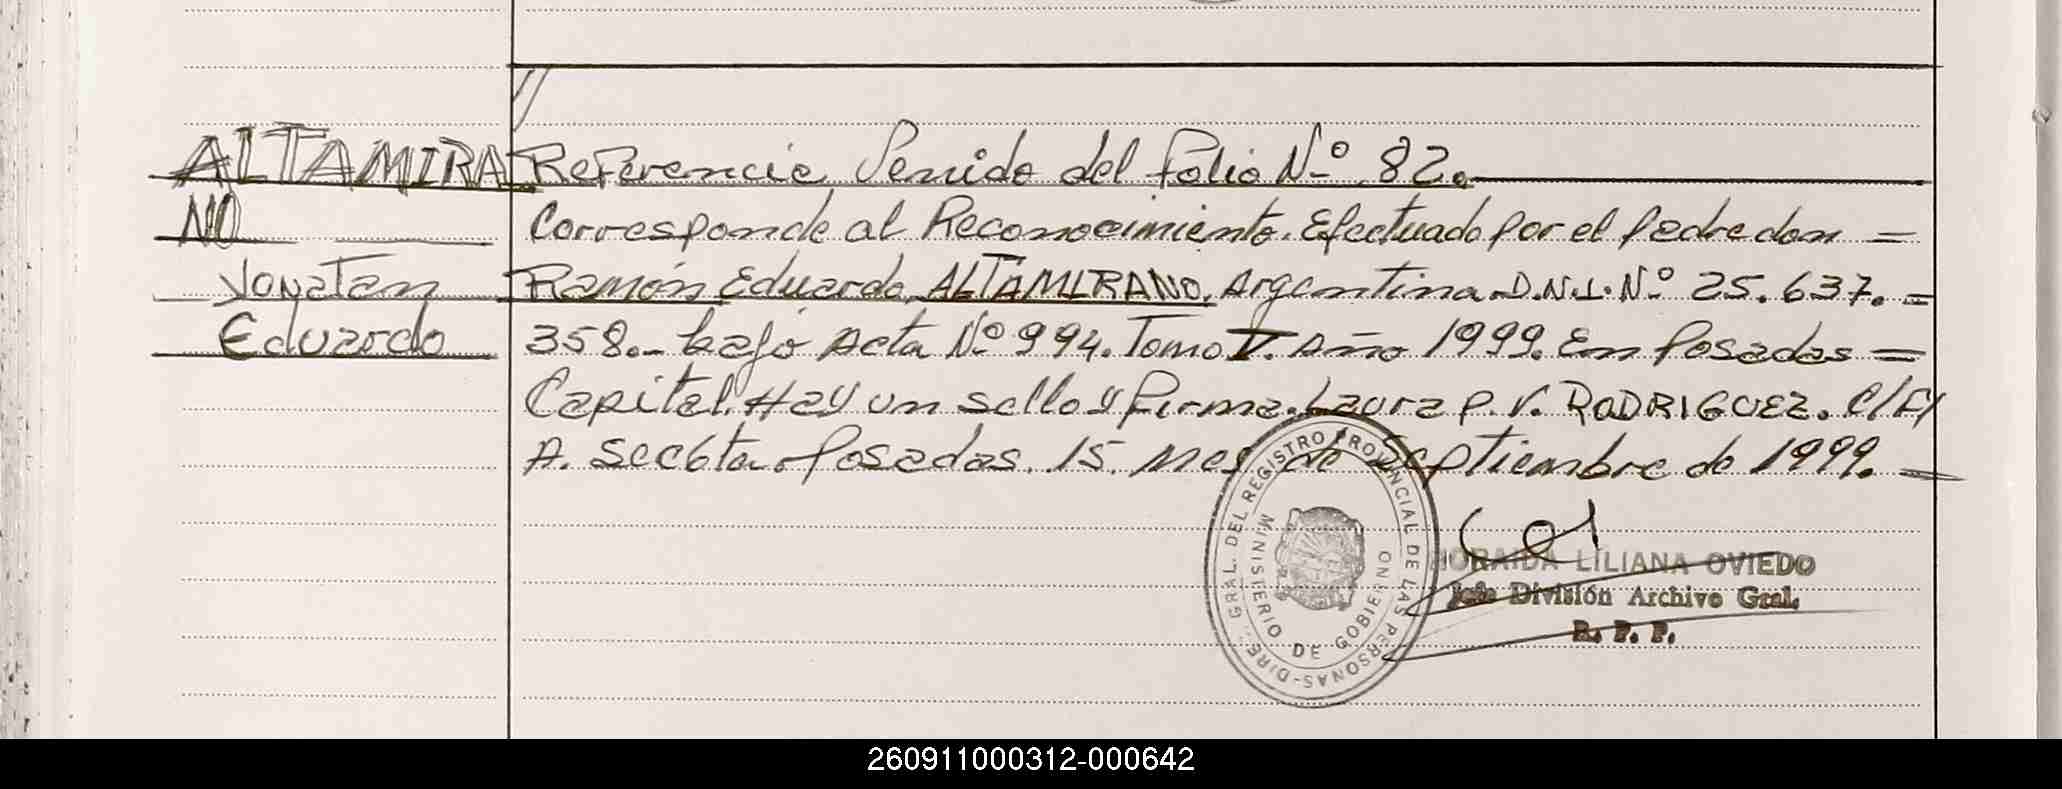 ALTAMIRA
NO
Yonatan
Eduardo
Referencia Venido del folio Nº 82.
Corresponde al Reconocimiento. Efectuado por el padre don =
Ramón Eduardo, ALTAMIRANO, Argentina D.N.I. Nº 25.637.=
358.- bajo Acta Nº 994. Tomo V. Año 1999. En Posadas =
Capital. Hay un sello y firma. Laura P. V. RODRIGUEZ. C/F/
A. Secc6ta. Posadas. 15. Mes de Septiembre de 1999. -
DIRE. GRAL. DEL REGISTRO PROVINCIAL DE LAS PERSONAS-
MINISTERIO DE GOBIERNO
LILIANA OVIEDO
Jefe División Archivo Gral.
R. P. P.
260911000312-000642